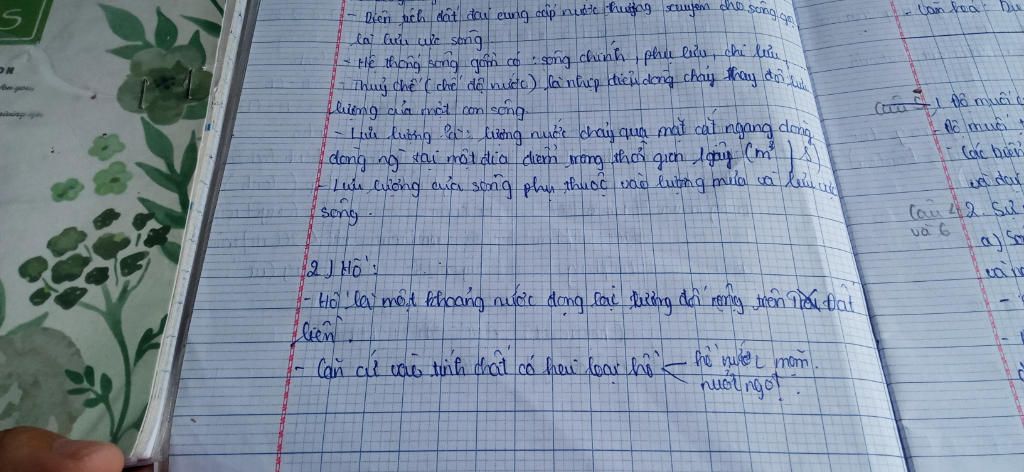 - Diện tích đất đai cung cấp nước thường xuyên cho sông gọi
là lưu vực sông
- Hệ thống sông gồm có : sông chính, phụ lưu, chi lưu.
- Thuỷ chế (chế độ nước) là nhịp điệu dòng chảy thay đổi lưu
lượng của một con sông.
- Lưu lượng là : lượng nước chảy qua mặt cắt ngang dòng
tại một địa điểm trong thời gian 1 giây (m³ / s)
- Lưu lượng của sông phụ thuộc vào lượng mưa và lưu vực
sông.
2) Hồ :
- Hồ là một khoảng nước đọng lại tương đối rộng trên đất
liền.
- Căn cứ vào tính chất có hai loại hồ < hồ nước mặn.
nước ngọt.
Câu 5
1 Độ muối
- Độ muối
- Các biển
Câu 4
và 6
2. Sự
a) Só